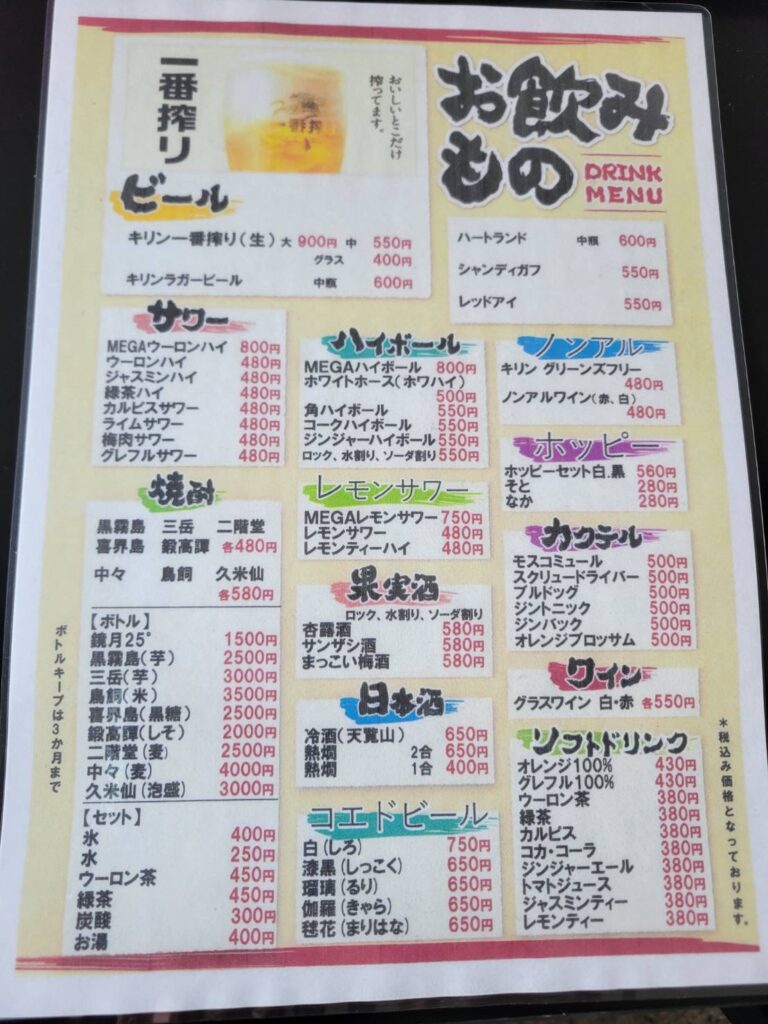 一番搾り
おいしいとこだけ
搾ってます。
お飲み
もの
DRINK
MENU
ビール
キリン一番搾り(生) 大 900円 中 550円
グラス 400円
キリンラガービール 中瓶 600円
ハートランド 中瓶 600円
シャンディガフ 550円
レッドアイ 550円
サワー
MEGAウーロンハイ 800円
ウーロンハイ 480円
ジャスミンハイ 480円
緑茶ハイ 480円
カルピスサワー 480円
ライムサワー 480円
梅肉サワー 480円
グレフルサワー 480円
焼酎
黒霧島 三岳 二階堂
喜界島 鍛高譚 各480円
中々 鳥飼 久米仙
各580円
【ボトル】
鏡月25° 1500円
黒霧島(芋) 2500円
三岳(芋) 3000円
鳥飼(米) 3500円
喜界島(黒糖) 2500円
鍛高譚(しそ) 2000円
二階堂(麦) 2500円
中々(麦) 4000円
久米仙(泡盛) 3000円
【セット】
氷 400円
水 250円
ウーロン茶 450円
緑茶 450円
炭酸 300円
お湯 400円
ボトルキープは3か月まで
ハイボール
MEGAハイボール 800円
ホワイトホース(ホワハイ)
500円
角ハイボール 550円
コークハイボール 550円
ジンジャーハイボール 550円
ロック、水割り、ソーダ割り 550円
レモンサワー
MEGAレモンサワー 750円
レモンサワー 480円
レモンティーハイ 480円
果実酒
ロック、水割り、ソーダ割り
杏露酒 580円
サンザシ酒 580円
まっこい梅酒 580円
日本酒
冷酒(天覧山) 650円
熱燗 2合 650円
熱燗 1合 400円
コエドビール
白(しろ) 750円
漆黒(しっこく) 650円
瑠璃(るり) 650円
伽羅(きゃら) 650円
毬花(まりはな) 650円
ノンアル
キリン グリーンズフリー
480円
ノンアルワイン(赤、白)
480円
ホッピー
ホッピーセット白.黒 560円
そと 280円
なか 280円
カクテル
モスコミュール 500円
スクリュードライバー 500円
ブルドッグ 500円
ジントニック 500円
ジンバック 500円
オレンジブロッサム 500円
ワイン
グラスワイン 白・赤 各550円
ソフトドリンク
オレンジ100% 430円
グレフル100% 430円
ウーロン茶 380円
緑茶 380円
カルピス 380円
コカ・コーラ 380円
ジンジャーエール 380円
トマトジュース 380円
ジャスミンティー 380円
レモンティー 380円
*税込み価格となっております。